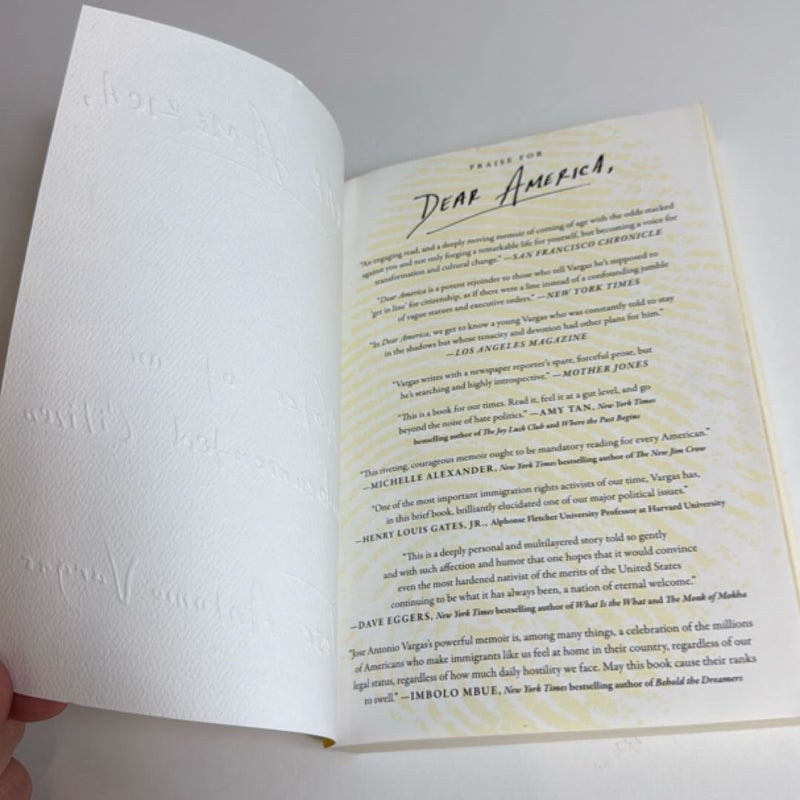 PRAISE FOR
DEAR AMERICA,
"An engaging read, and a deeply moving memoir of coming of age with the odds stacked
against you and not only forging a remarkable life for yourself, but becoming a voice for
transformation and cultural change." —SAN FRANCISCO CHRONICLE
"Dear America is a potent rejoinder to those who tell Vargas he's supposed to
'get in line' for citizenship, as if there were a line instead of a confounding jumble
of vague statues and executive orders." —NEW YORK TIMES
"In Dear America, we get to know a young Vargas who was constantly told to stay
in the shadows but whose tenacity and devotion had other plans for him."
—LOS ANGELES MAGAZINE
"Vargas writes with a newspaper reporter's spare, forceful prose, but
he's searching and highly introspective." —MOTHER JONES
"This is a book for our times. Read it, feel it at a gut level, and go
beyond the noise of hate politics." —AMY TAN, New York Times
bestselling author of The Joy Luck Club and Where the Past Begins
"This riveting, courageous memoir ought to be mandatory reading for every American."
—MICHELLE ALEXANDER, New York Times bestselling author of The New Jim Crow
"One of the most important immigration rights activists of our time, Vargas has,
in this brief book, brilliantly elucidated one of our major political issues."
—HENRY LOUIS GATES, JR., Alphonse Fletcher University Professor at Harvard University
"This is a deeply personal and multilayered story told so gently
and with such affection and humor that one hopes that it would convince
even the most hardened nativist of the merits of the United States
continuing to be what it has always been, a nation of eternal welcome."
—DAVE EGGERS, New York Times bestselling author of What Is the What and The Monk of Mokha
"Jose Antonio Vargas's powerful memoir is, among many things, a celebration of the millions
of Americans who make immigrants like us feel at home in their country, regardless of our
legal status, regardless of how much daily hostility we face. May this book cause their ranks
to swell." —IMBOLO MBUE, New York Times bestselling author of Behold the Dreamers
AMERICA,
of an
Citizen
Antonio Vargas